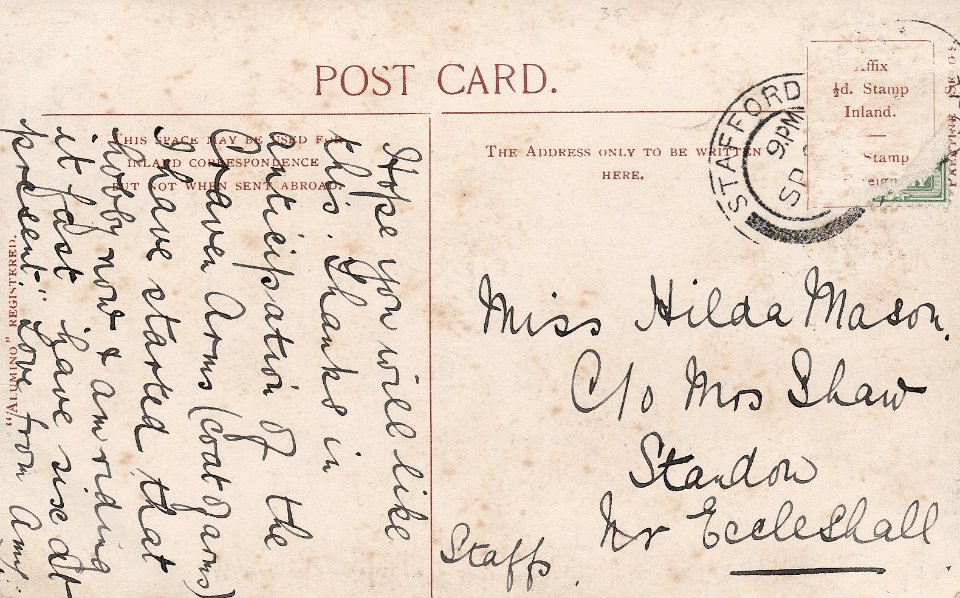 35
POST CARD.
THIS SPACE MAY BE USED FOR
INLAND CORRESPONDENCE
BUT NOT WHEN SENT ABROAD.
THE ADDRESS ONLY TO BE WRITTEN
HERE.
Affix
½d. Stamp
Inland.
Stamp
STAFFORD
9PM
SP
"ALUMINO" REGISTERED.
Hope you will like
this. Thanks in
anticipation of the
Craven Arms (coat of arms)
I have started that
hobby now & am riding
it fast have six at
present." Love from Amy.
Miss Hilda Mason.
C/o Mrs Shaw
Standon
Nr Eccleshall
Staffs.